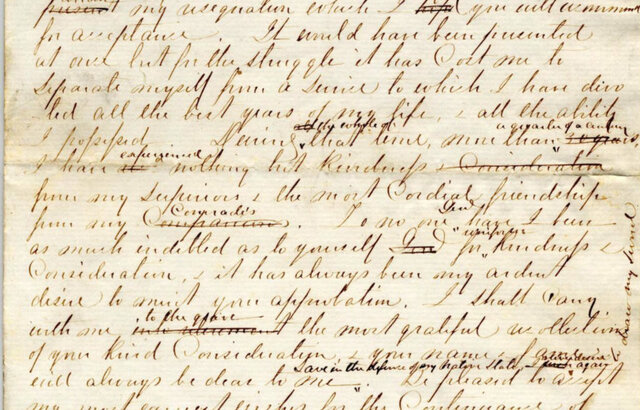 present my resignation which I hope you will recommend
for acceptance. It would have been presented
at once but for the struggle it has Cost me to
separate myself from a service to which I have devo
ted all the best years of my life, & all the ability
I possessed. During the whole of that time, more than a quarter of a century 30 years,
I have experienced nothing but kindness & Consideration
from my superiors & the most Cordial friendship
from my Comrades Companions. To no one Genl have I been
as much indebted as to yourself for uniform kindness &
Consideration, & it has always been my ardent
desire to merit your approbation. I shall carry
with me to the grave into retirement the most grateful recollection
of your Kind Consideration, & your name & fame
will always be dear to me. Save in the defence of my native State
Be pleased to accept
my most earnest wishes for the Continuance of
desire my sword
again